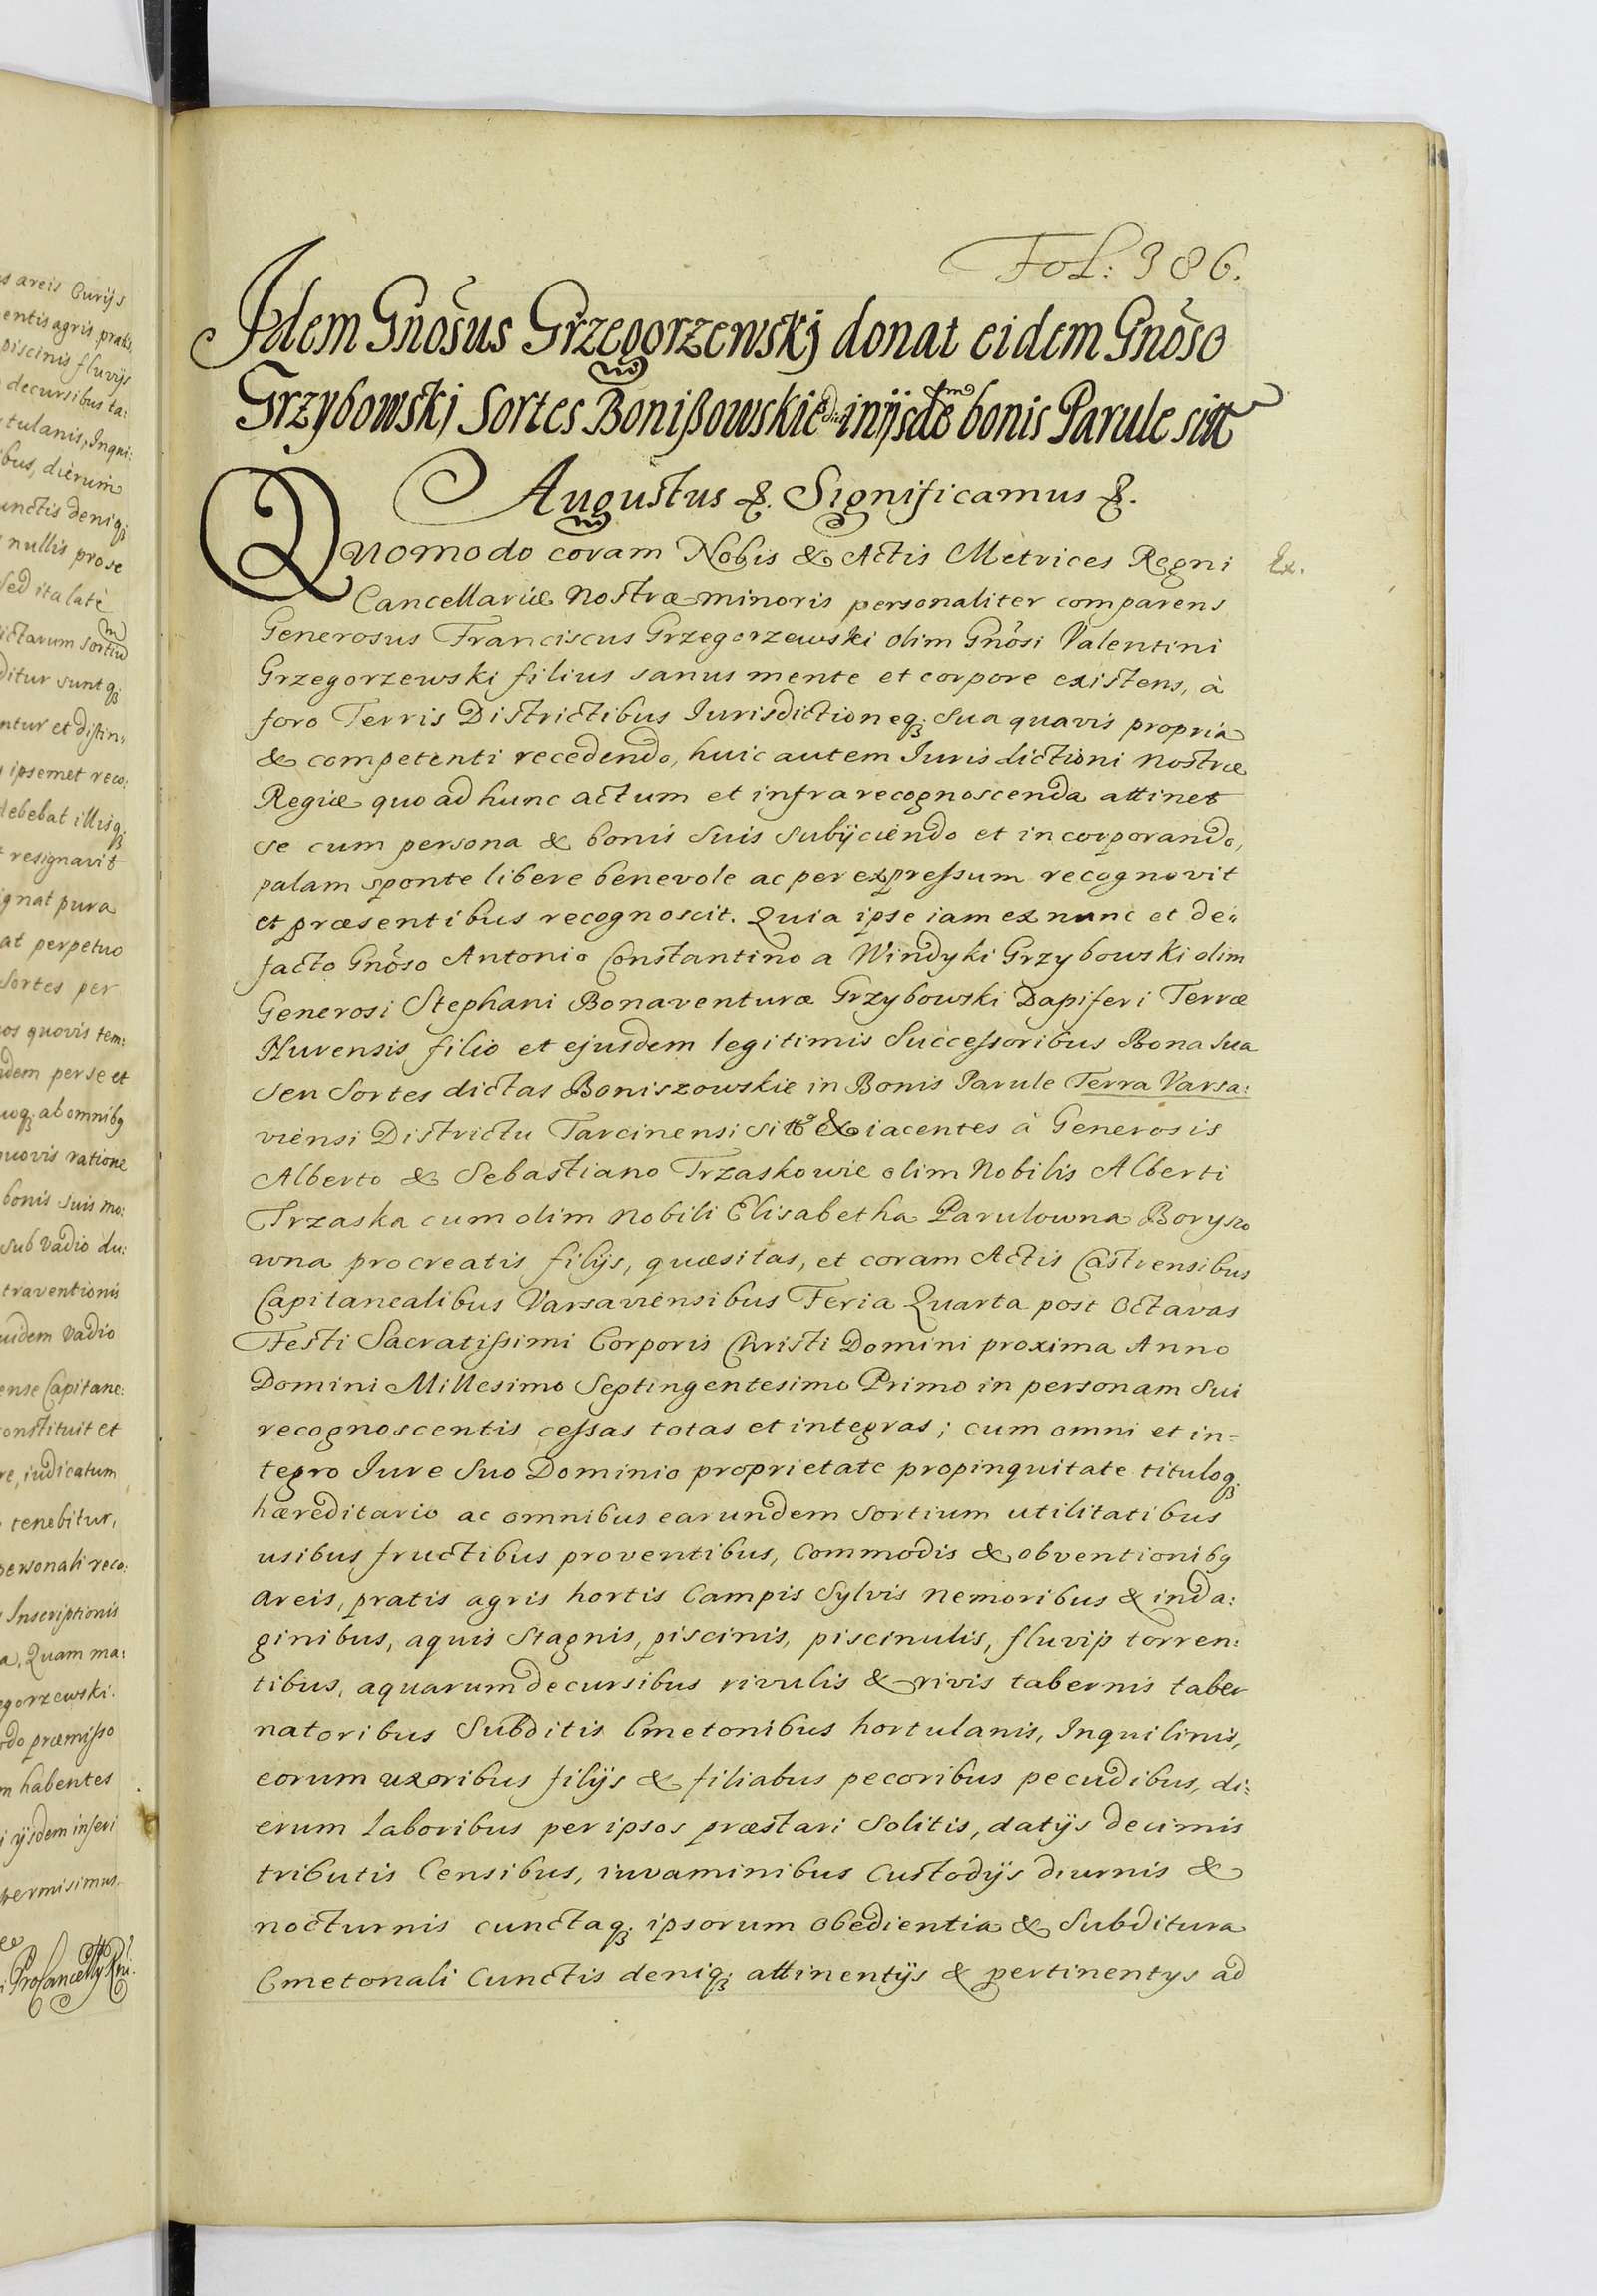 s areis Curijs
entis agris pratis,
piscinis fluvijs
decursibus ta:
tulanis, Inqui:
bus, dierum
unctis deniq3
nullis pro se
sed ita latè
ictarum sortium
ditur suntq3
ntur et distin„
ipsemet reco:
debebat illisq3
resignavit
ignat pura
at perpetuo
Sortes per
os quovis tem:
dem per se et
uoq3 ab omnibq
quovis ratione
bonis suis mo:
sub Vadio du:
traventionis
uidem Vadio
ense Capitane:
onstituit et
re, iudicatum
tenebitur,
personali reco:
Inscriptionis
a, Quam ma:
egorzewski.
do præmisso
m habentes
i ijsdem inseri
permisimus.
Fol: 386.
Idem Gnõsus Grzegorzewskj donat eidem Gnõso
Grzybowski Sortes Bonißowskie in ijsdem bonis Parule sitt
Augustus &. Significamus &.
Quomodo coram Nobis & Actis Metrices Regni
Ex.
Cancellariæ Nostræ minoris personaliter comparens
Generosus Franciscus Grzegorzewski olim Gnõsi Valentini
Grzegorzewski filius sanus mente et corpore existens, à
foro Terris Districtibus Iurisdictioneq3 sua quavis propria
& competenti recedendo, huic autem Iurisdictioni Nostræ
Regiæ quo ad hunc actum et infra recognoscenda attinet
se cum persona & bonis suis subijciendo et incorporando,
palam sponte libere benevole ac per expressum recognovit
et præsentibus recognoscit. Quia ipse iam ex nunc et de„
facto Gnõso Antonio Constantino a Windyki Grzybowski olim
Generosi Stephani Bonaventuræ Grzybowski Dapiferi Terræ
Nurensis filio et ejusdem legitimis Successoribus Bona sua
seu Sortes dictas Boniszowskie in Bonis Parule Terra Varsa:
viensi Districtu Tarcinensi & iacentes à Generosis
Alberto & Sebastiano Trzaskowie olim Nobilis Alberti
Trzaska cum olim Nobili Elisabetha Parulowna Boryszo
wna procreatis filijs, quæsitas, et coram Actis Castrensibus
Capitanealibus Varsaviensibus Feria Quarta post Octavas
Festi Sacratissimi Corporis Christi Domini proxima Anno
Domini Millesimo Septingentesimo Primo in personam sui
recognoscentis cessas totas et integras; cum omni et in=
tegro Iure suo Dominio proprietate propinquitate tituloq3
hæreditario ac omnibus earundem sortium utilitatibus
usibus fructibus proventibus, commodis & obventionibq
areis, pratis agris hortis Campis Sylvis nemoribus & inda:
ginibus, aquis stagnis, piscinis, piscinulis, fluvijs torren:
tibus, aquarum decursibus rivulis & rivis tabernis taber
natoribus Subditis Cmetonibus hortulanis, Inquilinis,
eorum uxoribus filijs & filiabus pecoribus pecudibus, di:
erum laboribus per ipsos præstari solitis, datijs decimis
tributis Censibus, iuvaminibus Custodijs diurnis &
nocturnis cunctaq3 ipsorum obedientia & Subditura
Cmetonali Cunctis deniq3 attinentijs & pertinentys ad